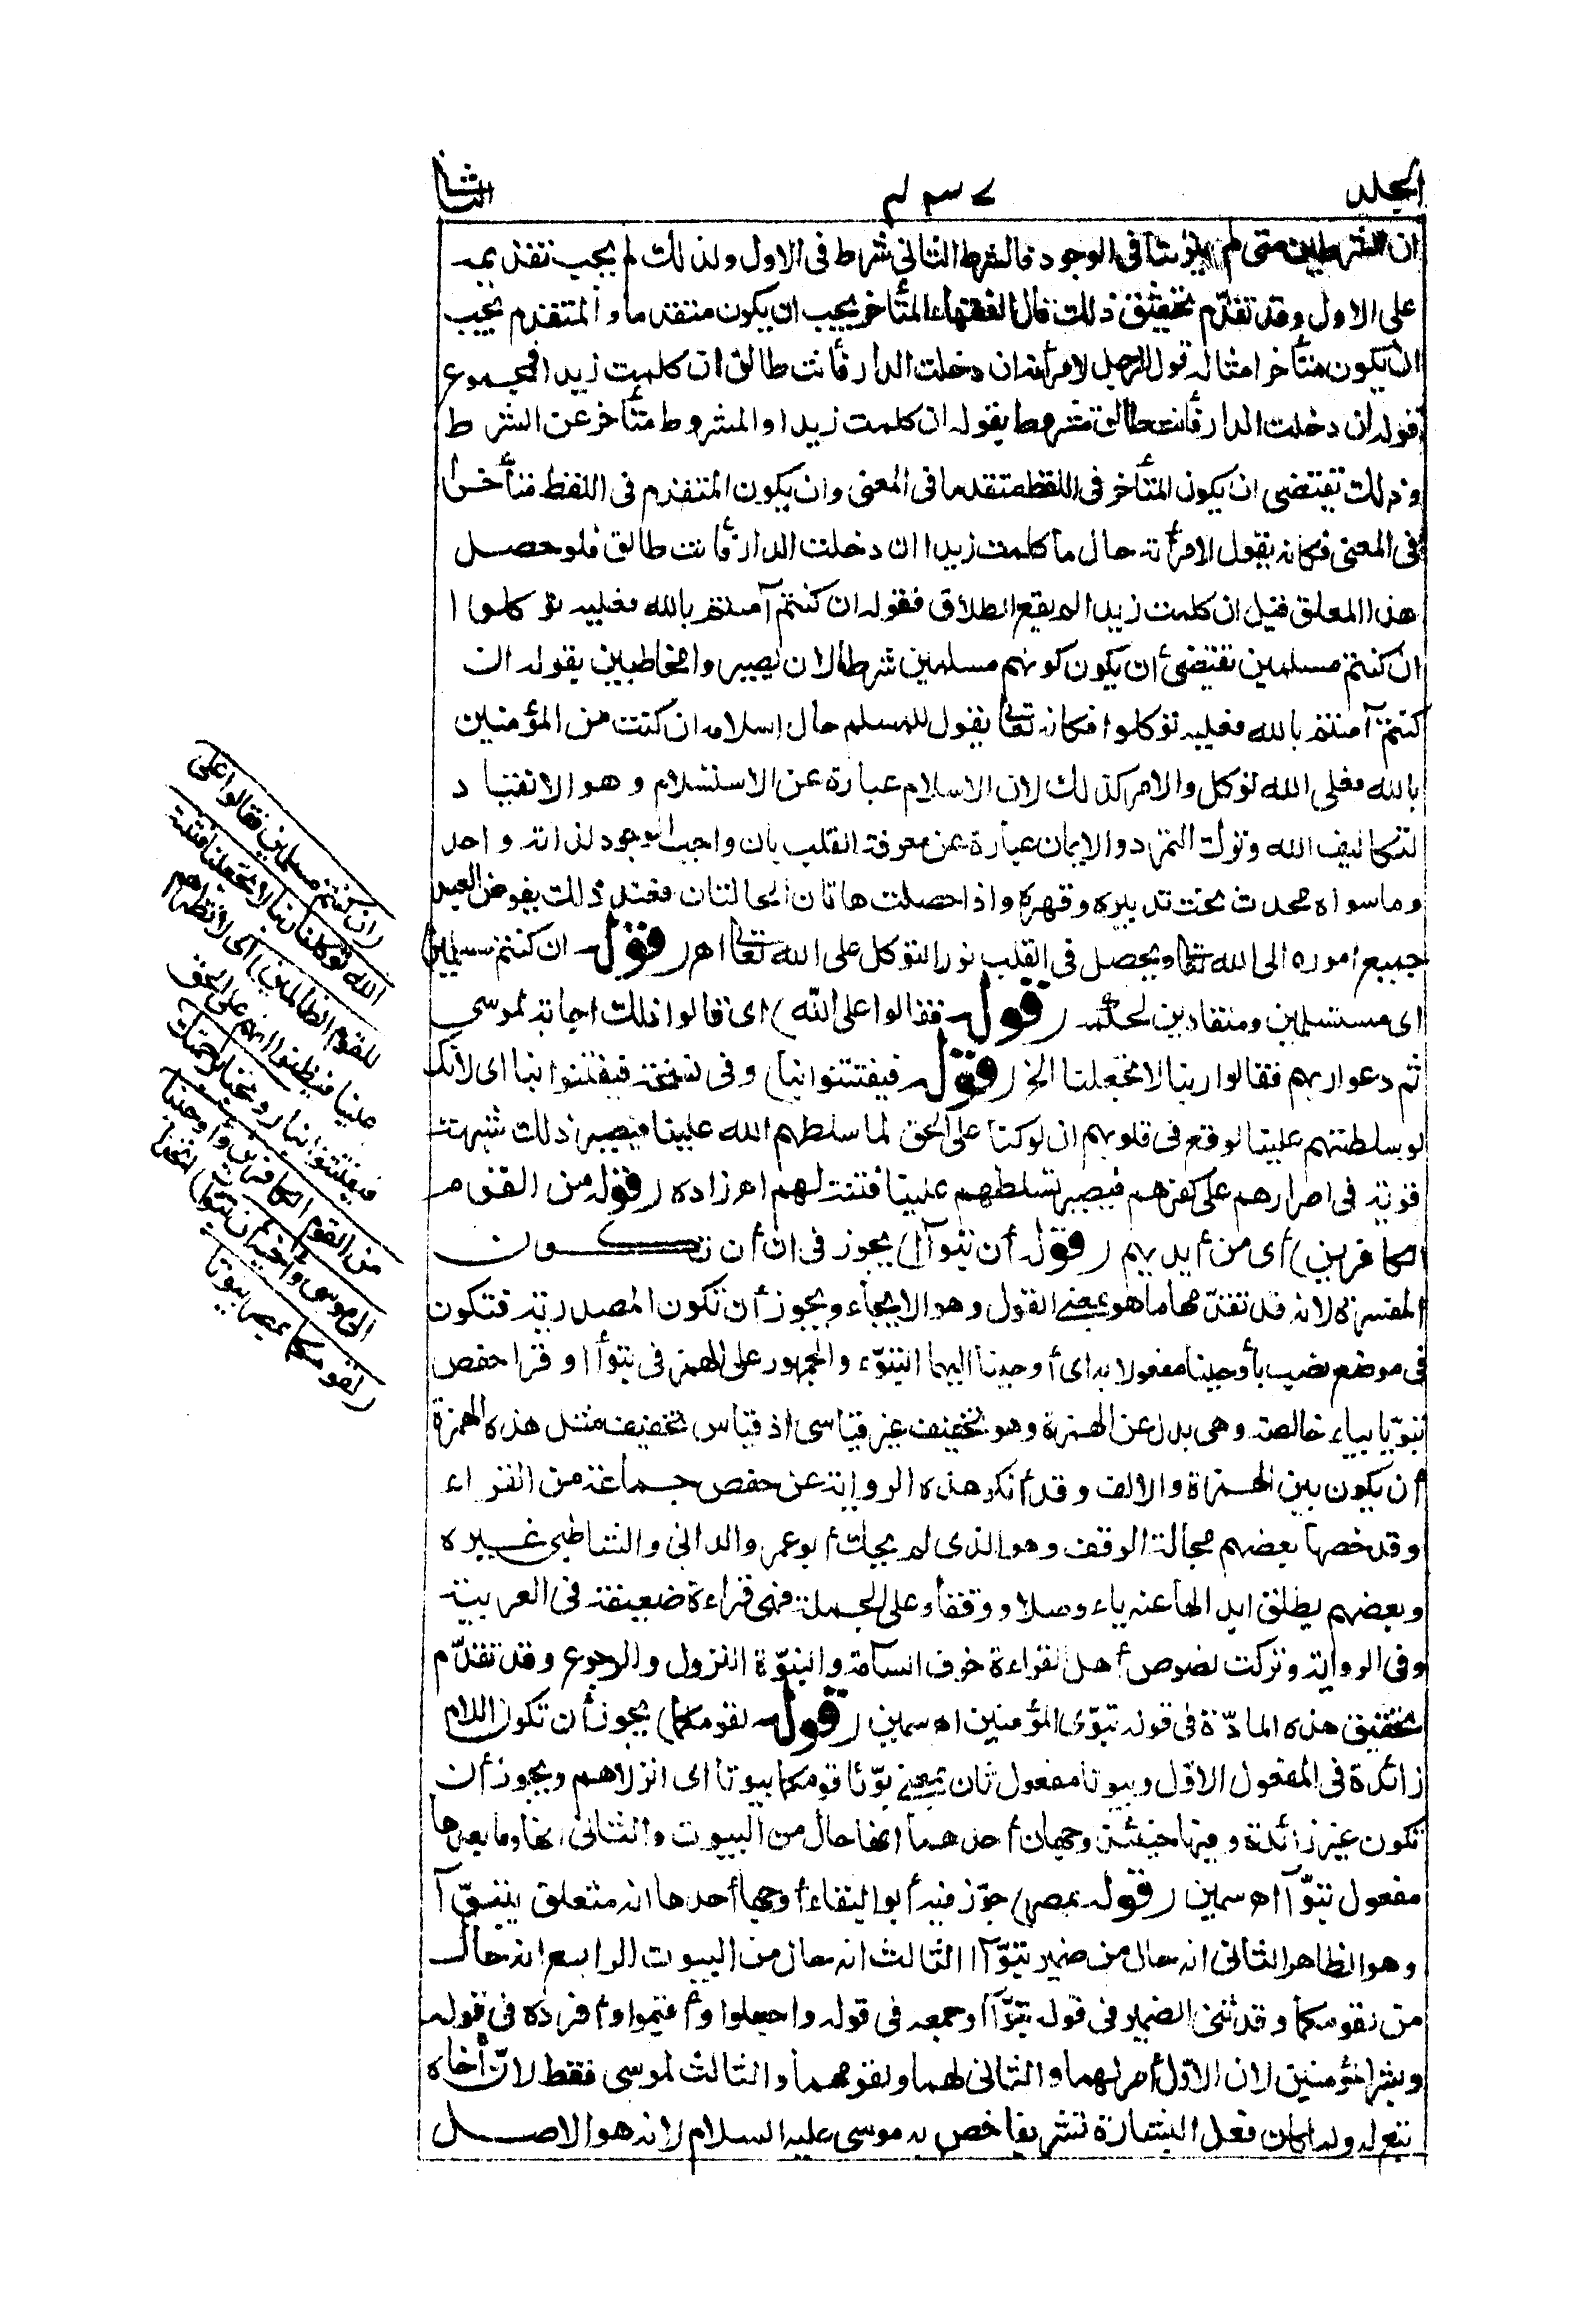 المجلد
٤٣٧
الثانى
ان الشرطين متى لم يترتبا فى الوجود فالشرط الثانى شرط فى الاول ولذلك لم يجب تقديمه
على الاول وقد تقدّم تحقيق ذلك قال الفقهاء المتأخر يجب ان يكون متقدما والمتقدم يجب
ان يكون متأخرا مثاله قول الرجل لامرأته ان دخلت الدار فأنت طالق ان كلمت زيدا فمجموع
قوله ان دخلت الدار فأنت طالق مشروط بقوله ان كلمت زيدا والمشروط متأخر عن الشرط
وذلك يقتضى ان يكون المتأخر فى اللفظ متقدما فى المعنى وان يكون المتقدم فى اللفظ متأخرا
فى المعنى فكانه يقول لامرأته حال ما كلمت زيدا ان دخلت الدار فأنت طالق فلو حصل
هذا المعلق قبل ان كلمت زيدا لم يقع الطلاق فقوله ان كنتم آمنتم بالله فعليه توكلوا
ان كنتم مسلمين يقتضى أن يكون كونهم مسلمين شرطا لان يصيروا مخاطبين بقوله ان
كنتم آمنتم بالله فعليه توكلوا فكانه تعالى يقول للمسلم حال اسلامه ان كنت من المؤمنين
بالله فعلى الله توكل والامر كذلك لان الاسلام عبارة عن الاستسلام وهو الانقياد
لتكاليف الله وترك التمرد والايمان عبارة عن معرفة القلب بان واجب الوجود لذاته واحد
وما سواه محدث تحت تدبيره وقهره واذا حصلت هاتان الحالتان فعند ذلك يفوض العبد
جميع أموره الى الله تعالى ويحصل فى القلب نور التوكل على الله تعالى اهـ (قوله ان كنتم مسلمين)
اى مستسلمين ومنقادين لحكمه (قوله فقالوا على الله) اى قالوا ذلك اجابة لموسى
ثم دعوا ربهم فقالوا ربنا لا تجعلنا الخ (قوله فيفتتنوا بنا) وفى نسخة فيفتنوا بنا اى لانك
لو سلطتهم علينا لوقع فى قلوبهم ان لو كنا على الحق لما سلطهم الله علينا فيصير ذلك شبهة
قوية فى اصرارهم على كفرهم فيصير تسلطهم علينا فتنة لهم اهـ زاده (قوله من القوم
الكافرين) أى من أيديهم (قوله أن تبوآ) يجوز فى ان أن تكون
المفسرة لانه قد تقدّمها ما هو بمعنى القول وهو الايحاء ويجوز أن تكون المصدرية فتكون
فى موضع نصب بأوحينا مفعولا به اى أوحينا اليهما التبوّء والجمهور على الهمز فى تبوأا وقرا حفص
تبوّيا بياء خالصة وهى بدل عن الهمزة وهو تخفيف غير قياسى اذ قياس تخفيف مثل هذه الهمزة
أن يكون بين الهمزة والالف وقد أنكر هذه الرواية عن حفص جماعة من القراء
وقد خصها بعضهم بحالة الوقف وهو الذى لم يحك أبو عمرو الدانى والشاطبى غيره
وبعضهم يطلق ابدالها عنه ياء وصلا ووقفا وعلى الجملة فهى قراءة ضعيفة فى العربية
وفى الرواية وتركت نصوص أهل القراءة خوف السآمة والتبوّة النزول والرجوع وقد تقدّم
تحقيق هذه المادّة فى قوله تبوّى المؤمنين اهـ سمين (قوله لقومكما) يجوز أن تكون اللام
زائدة فى المفعول الاول وبيوتا مفعول ثان بمعنى بوّئا قومكما بيوتا اى انزلاهم ويجوز أن
تكون غير زائدة وفيها حينئذ وجهان أحدهما انها حال من البيوت والثانى انها وما بعدها
مفعول تبوّآ اهـ سمين (قوله بمصر) جوّز فيه أبو البقاء أوجها أحدها انه متعلق بتبوّآ
وهو الظاهر الثانى انه حال من ضمير تبوّآ الثالث انه حال من البيوت الرابع انه حال
من لقومكما وقد ثنى الضمير فى قوله تبوّآ وجمعه فى قوله واجعلوا وأقيموا وأفرده فى قوله
وبشر المؤمنين لان الاوّل أمر لهما والثانى لهما ولقومهما والثالث لموسى فقط لانّ أخاه
تبع له ولما كان فعل البشارة تشريفا خص به موسى عليه السلام لانه هو الاصل
(ان كنتم مسلمين فقالوا على
الله توكلنا ربنا لا تجعلنا فتنة
للقوم الظالمين) اى لا تظهرهم
علينا فيظنوا انهم على الحق
فيفتتنوا بنا (ونجنا برحمتك
من القوم الكافرين وأوحينا
الى موسى وأخيه أن تبوّآ) اتخذا
(لقومكما بمصر بيوتا